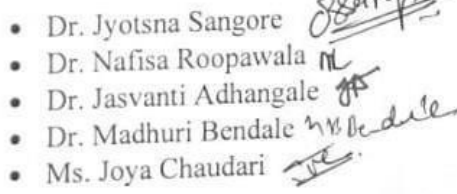 • Dr. Jyotsna Sangore
• Dr. Nafisa Roopawala
• Dr. Jasvanti Adhangale
• Dr. Madhuri Bendale
• Ms. Joya Chaudari